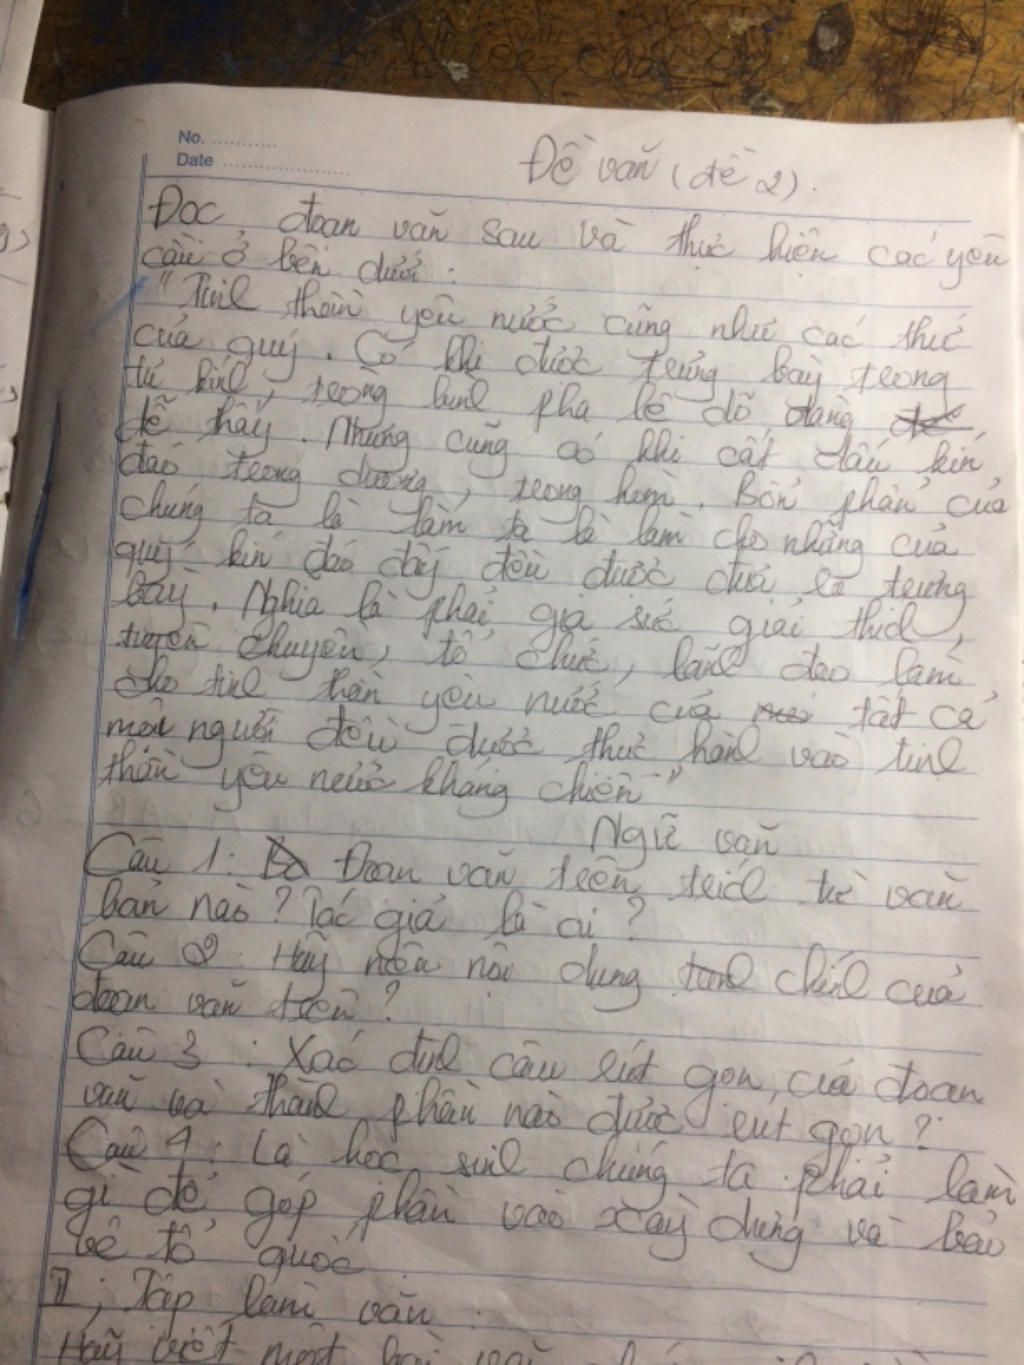 No. ............
Date ......................
Đề văn (đề 2).
Đọc đoạn văn sau và thực hiện các yêu
cầu ở bên dưới:
"Tinh thần yêu nước cũng như các thứ
của quý. Có khi được trưng bày trong
tủ kính, trong bình pha lê dõ dàng
dễ thấy. Nhưng cũng có khi cất dấu kín
đáo trong dương, trong hòm. Bổn phận của
chúng ta là làm ta là làm cho những của
quý kín đáo đấy đều được đưa ra trưng
bày. Nghĩa là phải gia sức giải thích,
tuyên chuyền, tổ chức, lãnh đạo làm
cho tinh thần yêu nước của tất cả
mọi người đều được thực hành vào tinh
thần yêu nước kháng chiến"
Ngữ văn
Câu 1: Đoạn văn trên trích từ văn
bản nào? Tác giả là ai?
Câu 2: Hãy nêu nội dung chính của
đoạn văn trên?
Câu 3: Xác định câu rút gọn của đoạn
văn và thành phần nào được rut gọn?
Câu 4: Là học sinh chúng ta phải làm
gì để góp phần vào xây dựng và bảo
vệ tổ quốc
II, Tập làm văn:
Hãy viết một bài văn